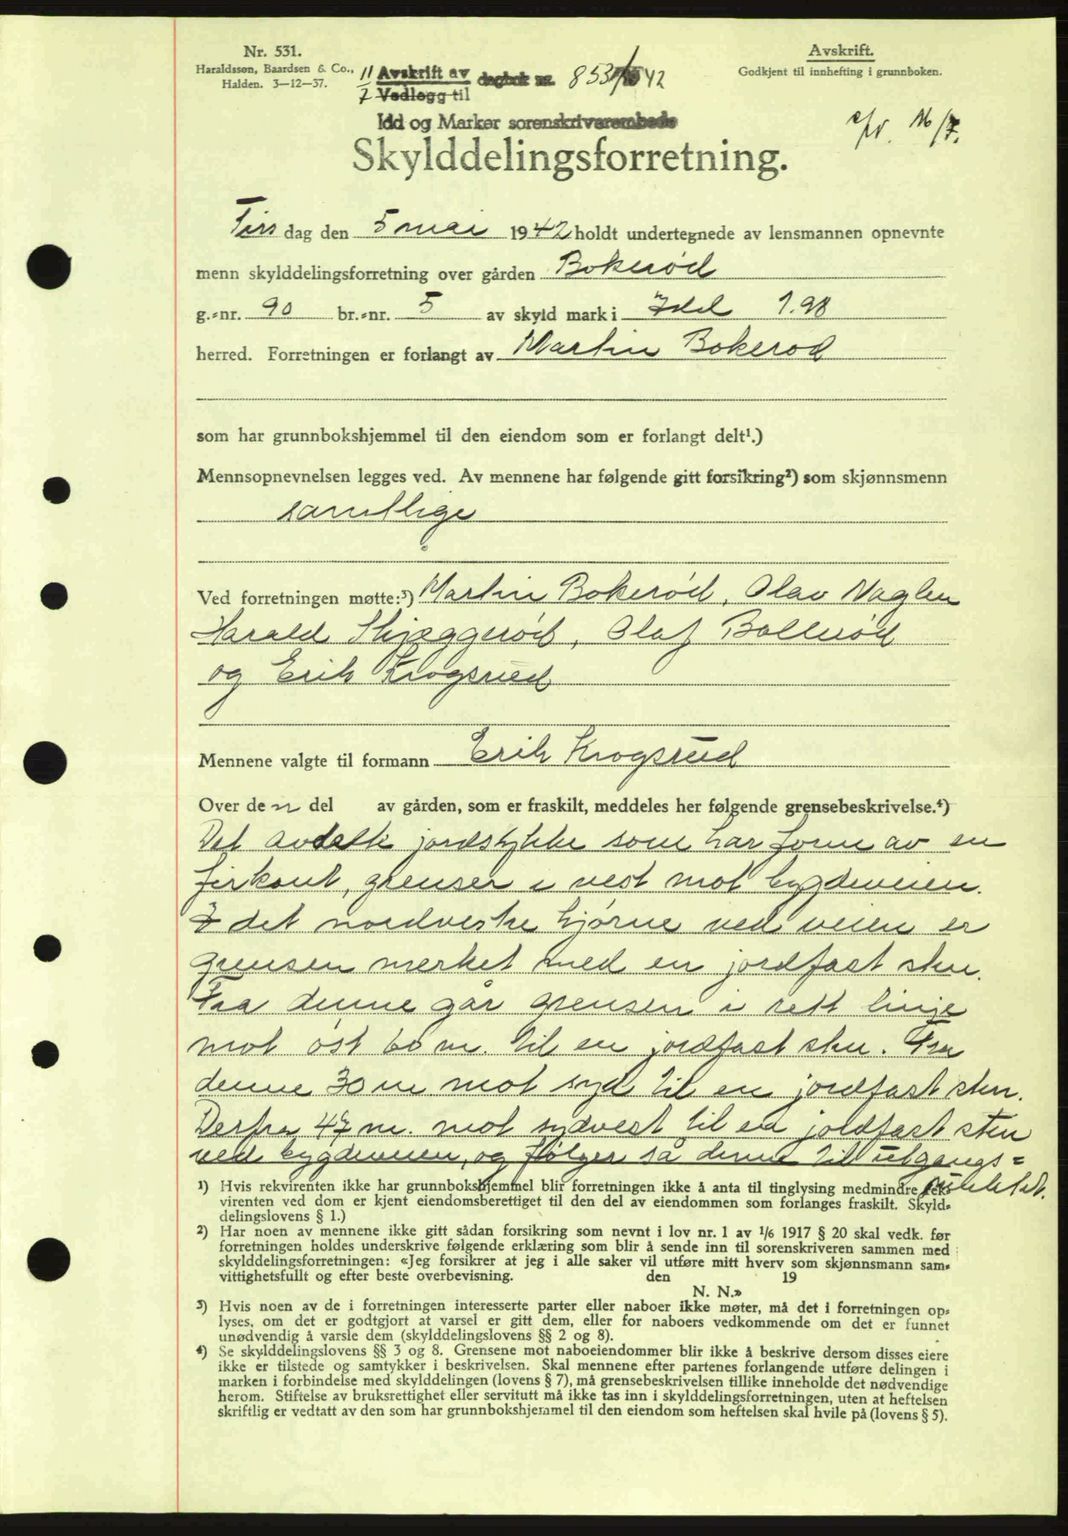 Nr. 531.
Haraldssøn, Baardsen & Co.,
Halden. 3—12—37.
Avskrift.
Godkjent til innhefting i grunnboken.
11/7 Avskrift av dagbok nr. 853/1942
Vedlegg til
Idd og Marker sorenskriverembede
16/7.
Skylddelingsforretning.
Tirs dag den 5 mai 1942 holdt undertegnede av lensmannen opnevnte
menn skylddelingsforretning over gården Bokerød
g.-nr. 90 br.-nr. 5 av skyld mark i Idd 1.98
herred. Forretningen er forlangt av Martin Bokerød
som har grunnbokshjemmel til den eiendom som er forlangt delt¹.)
Mennsopnevnelsen legges ved. Av mennene har følgende gitt forsikring²) som skjønnsmenn
samtlige
Ved forretningen møtte:³) Martin Bokerød, Olav Naglen
Harald Skjæggerød, Olaf Bollerød
og Erik Krogsrud
Mennene valgte til formann Erik Krogsrud
Over den del av gården, som er fraskilt, meddeles her følgende grensebeskrivelse.⁴)
Det avdelte jordstykke som har form av en
firkant, grenser i vest mot bygdeveien.
I det nordvestre hjørne ved veien er
grensen merket med en jordfast sten.
Fra denne går grensen i rett linje
mot øst 60 m. til en jordfast sten. Fra
denne 30 m mot syd til en jordfast sten.
Derfra 47 m. mot sydvest til en jordfast sten
ved bygdeveien, og følger så denne til utgangs=
punktet.
¹) Hvis rekvirenten ikke har grunnbokshjemmel blir forretningen ikke å anta til tinglysing medmindre rek-
virenten ved dom er kjent eiendomsberettiget til den del av eiendommen som forlanges fraskilt. Skyld-
delingslovens § 1.)
²) Har noen av mennene ikke gitt sådan forsikring som nevnt i lov nr. 1 av 1/6 1917 § 20 skal vedk. før
forretningen holdes underskrive følgende erklæring som blir å sende inn til sorenskriveren sammen med
skylddelingsforretningen: «Jeg forsikrer at jeg i alle saker vil utføre mitt hverv som skjønnsmann sam-
vittighetsfullt og efter beste overbevisning. den 19
N. N.»
³) Hvis noen av de i forretningen interesserte parter eller naboer ikke møter, må det i forretningen op-
lyses, om det er godtgjort at varsel er gitt dem, eller for naboers vedkommende om det er funnet
unødvendig å varsle dem (skylddelingslovens §§ 2 og 8).
⁴) Se skylddelingslovens §§ 3 og 8. Grensene mot naboeiendommer blir ikke å beskrive dersom disses eiere
ikke er tilstede og samtykker i beskrivelsen. Skal mennene efter partenes forlangende utføre delingen i
marken i forbindelse med skylddelingen (lovens § 7), må grensebeskrivelsen tillike inneholde det nødvendige
herom. Stiftelse av bruksrettighet eller servitutt må ikke tas inn i skylddelingsforretningen, uten at heftelsen
skriftlig er vedtatt av den som har grunnbokshjemmel til den eiendom som heftelsen skal hvile på (lovens § 5).